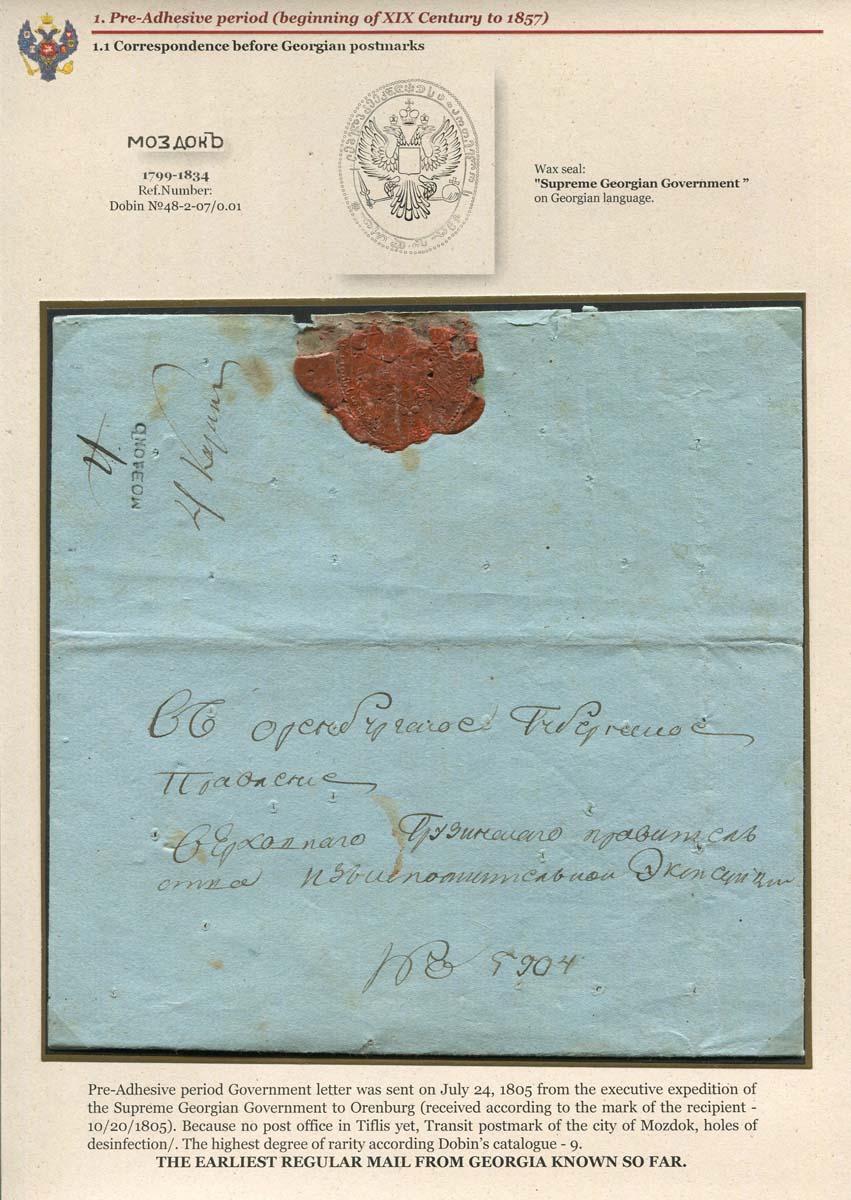 1. Pre-Adhesive period (beginning of XIX Century to 1857)
1.1 Correspondence before Georgian postmarks
МОЗДОКЪ
1799-1834
Ref.Number:
Dobin №48-2-07/0.01
Wax seal:
"Supreme Georgian Government ”
on Georgian language.
4
МОЗДОКЪ
Въ оренбургское Губернское
Правление
Верховнаго Грузинскаго правитель
ства изъ исполнительной Экспедиции
№ 5904
Pre-Adhesive period Government letter was sent on July 24, 1805 from the executive expedition of
the Supreme Georgian Government to Orenburg (received according to the mark of the recipient -
10/20/1805). Because no post office in Tiflis yet, Transit postmark of the city of Mozdok, holes of
desinfection/. The highest degree of rarity according Dobin’s catalogue - 9.
THE EARLIEST REGULAR MAIL FROM GEORGIA KNOWN SO FAR.